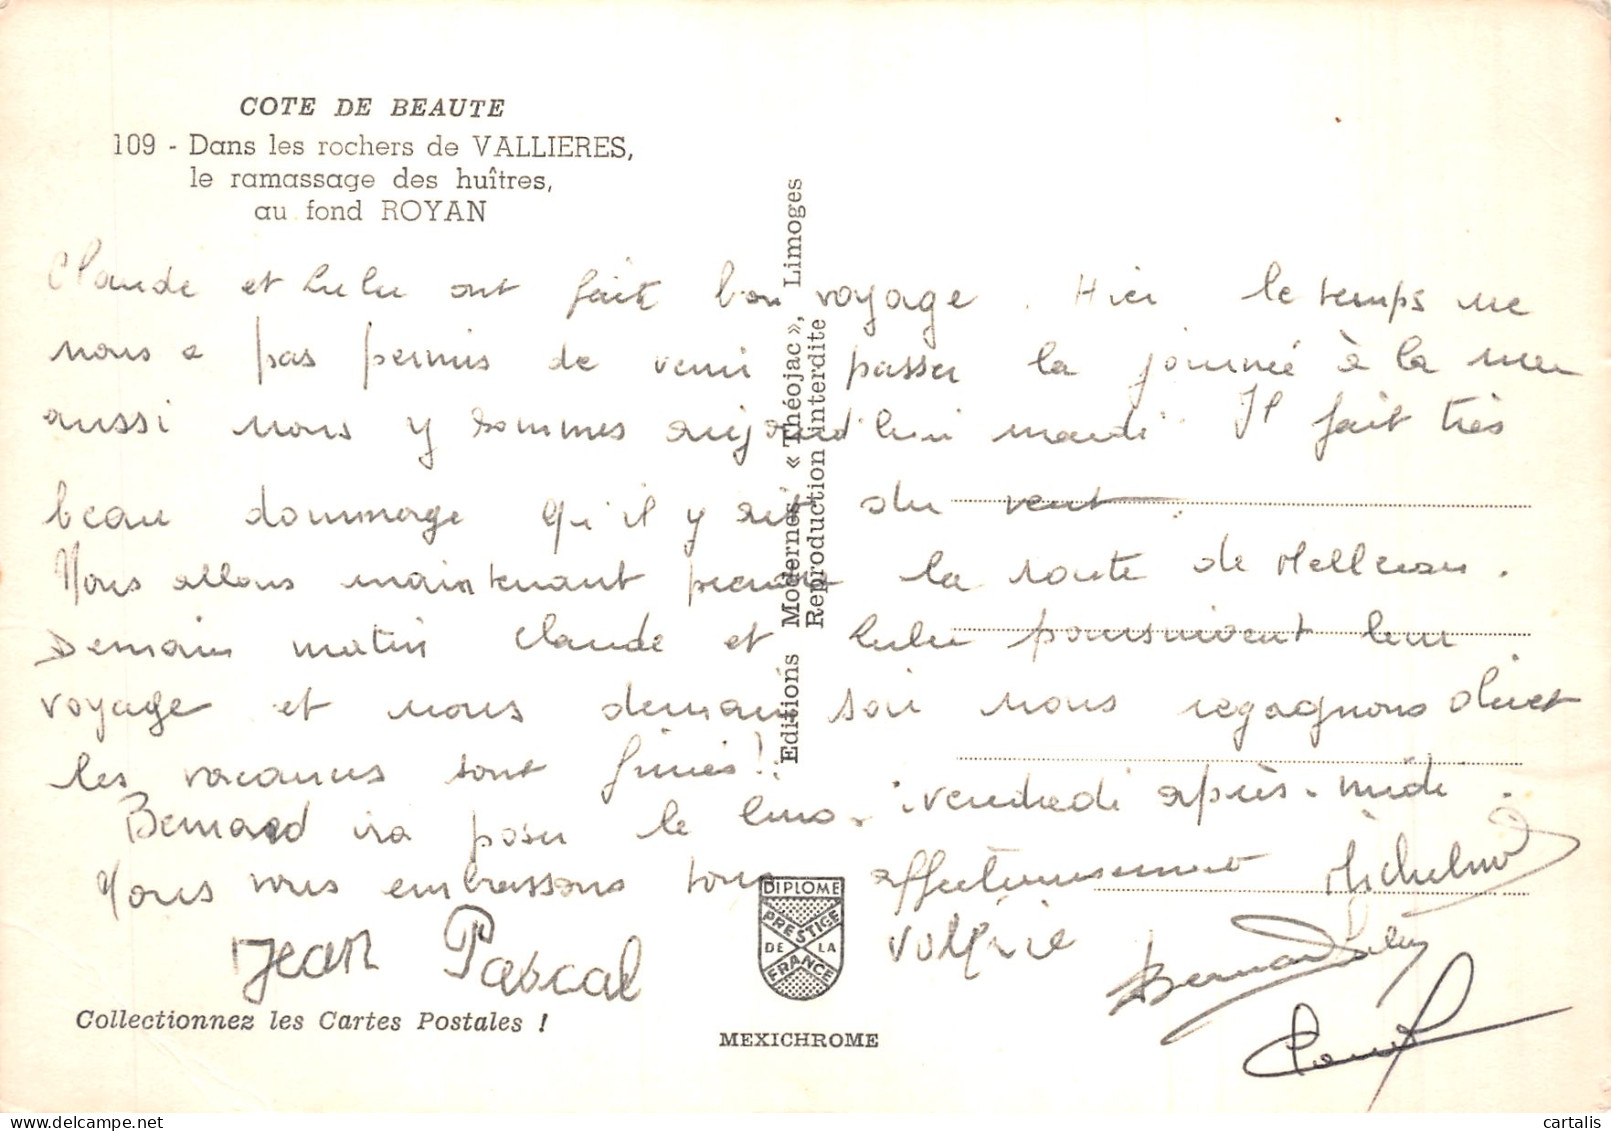 COTE DE BEAUTE
109 - Dans les rochers de VALLIERES,
le ramassage des huîtres,
au fond ROYAN
Claude et Lulu ont fait bon voyage. Hier le temps ne
nous a pas permis de venir passer la journée à la mer
aussi nous y sommes aujourd'hui mardi. Il fait très
beau dommage qu'il y ait du vent.
Nous allons maintenant prendre la route de Melleran.
Demain matin Claude et Lulu poursuivent leur
voyage et nous demain soir nous regagnons Olivet
les vacances sont finies!
Bernard ira poser le lino. vendredi après-midi.
Nous vous embrassons tous affectueusement
Jean Pascal
Valérie
Bernard
Editions Modernes « Théojac », Limoges
Reproduction interdite
DIPLOME
PRESTIGE
DE LA
FRANCE
MEXICHROME
Collectionnez les Cartes Postales !
cartalis